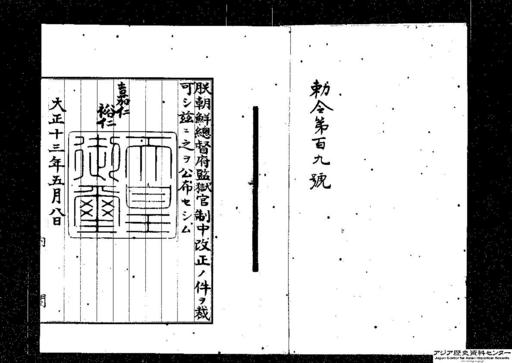 勅令第百九號
朕朝鮮總督府監獄官制中改正ノ件ヲ裁
可シ茲ニ之ヲ公布セシム
嘉仁
裕仁
天皇御璽
大正十三年五月八日
内閣
アジア歴史資料センター
Japan Center for Asian Historical Records